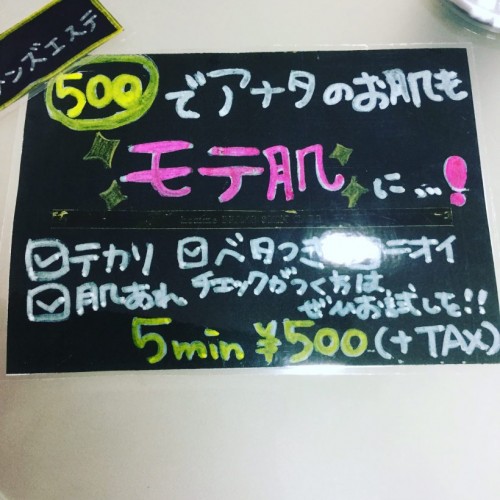 ンズエステ
500でアナタのお肌も
モテ肌に...!
☑テカリ ☑ベタつき ☑ニオイ
☑肌あれ チェックがつく方は
ぜひお試しを!!
5min ¥500(+TAX)